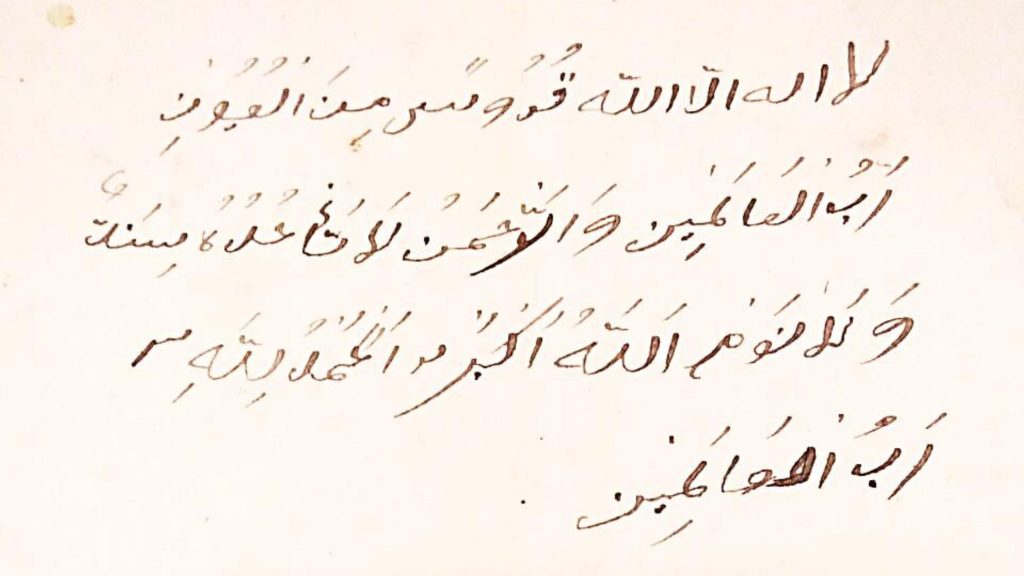 لا اله الّا اللّه قُدُّوسٌ مِنَ الْعُيُوْنِ
رَبُّ الْعَالَمِيْن وَ الرَّحْمٰنُ لَا تَأْخُذُهُ سِنَةٌ
وَ لَا نَوْمٌ اَللّٰهُ اَكْبَرُ وَ الْحَمْدُ لِلّٰهِ
رَبُّ الْعَالَمِيْن